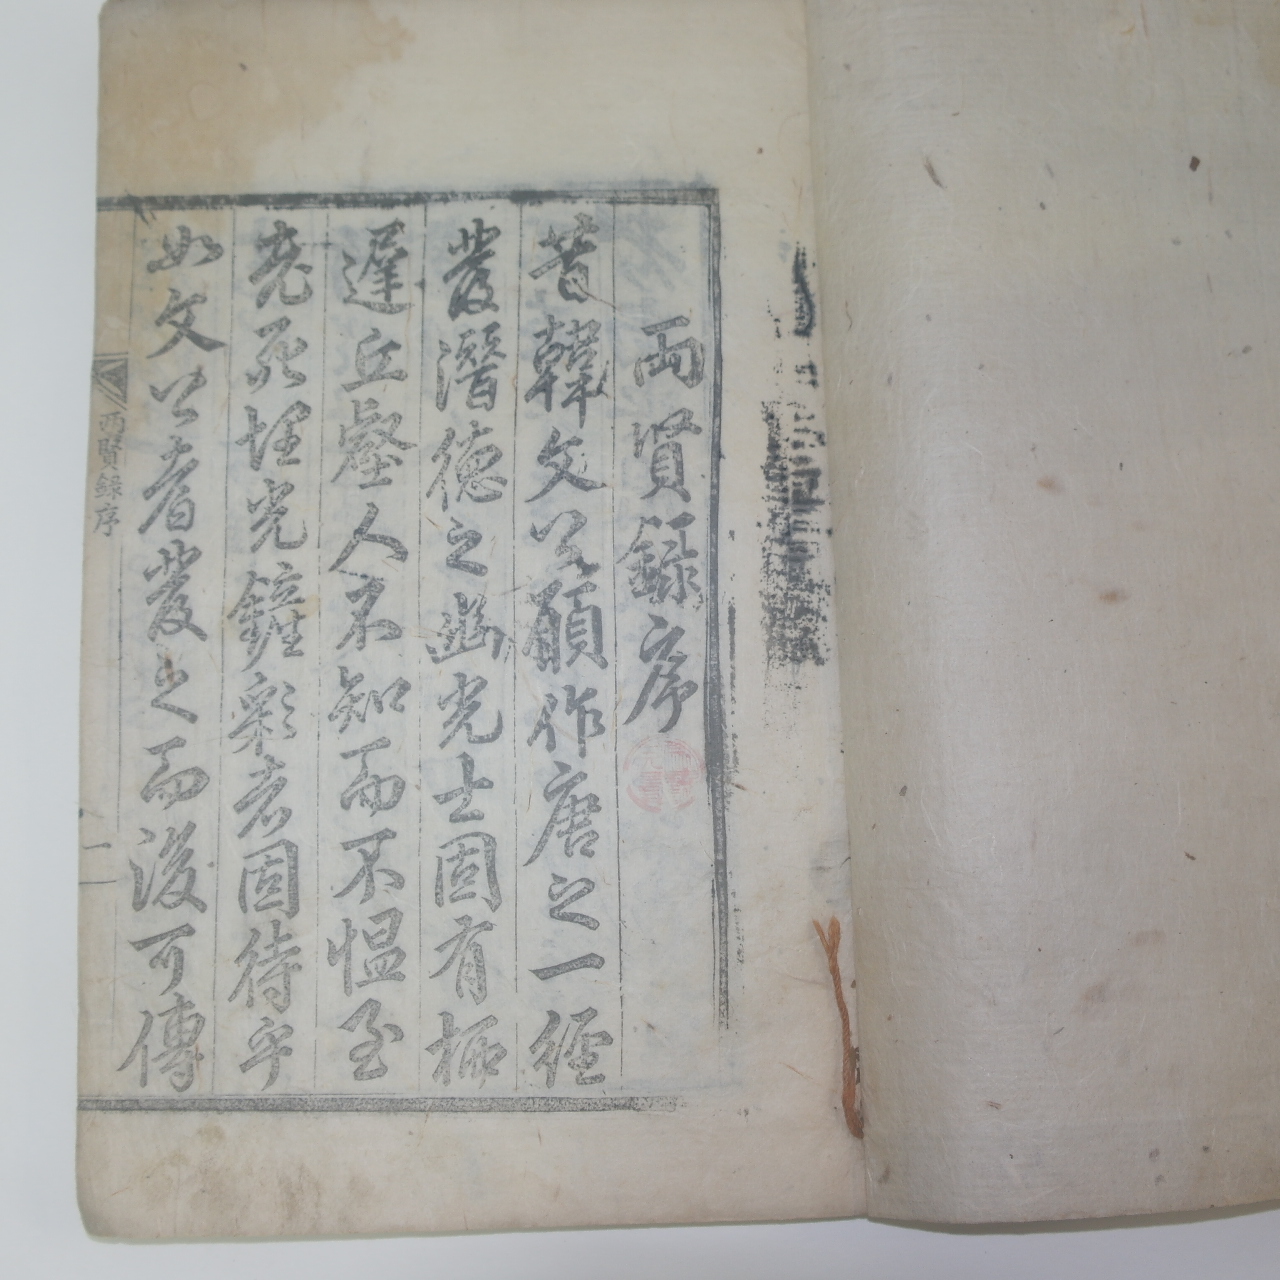 兩賢錄序
昔韓文公願作唐之一經
發潛德之幽光士固有栖
遲丘壑人不知而不慍至
死埋光鏟彩者固待乎
如文公者發之而後可傳
兩賢錄序
一